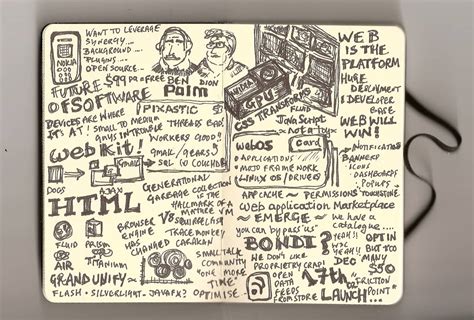 NOKIA
WANT TO LEVERAGE
SYNERGY...
BACKGROUND...
PLUGINS...
OPEN SOURCE...
FUTURE $99 pa → FREE
OF SOFTWARE
BEN
DION
Palm
DEVICES ARE WHERE
IT'S AT! SMALL TO MEDIUM
GUYS IN TROUBLE
PIXASTIC
THREADS BAD!
WORKERS GOOD!!
GMAIL/GEARS
SQL TO COUCHDB
Web Kit!
Gmail
DOCS
AJAX
HTML
GENERATIONAL
GARBAGE COLLECTION
IS THE
HALLMARK OF A
MATURE VM
BROWSER
ENGINE
HAS
CHANGED
VS SQUIRRELFISH
TRACEMONKEY
CARAKAN
FLUID
PRISM
AIR
TITANIUM
GRAND UNIFY
SMALLTALK
COMMUNITY
"ONE MORE
TIME"
FLASH · SILVERLIGHT · JAVAFX?
OPTIMISE...
NVIDIA
GPU
CSS TRANSFORMS
FLUID
WEB
IS THE
PLATFORM
HUGE
DEPLOYMENT
& DEVELOPER
BASE
JavaScript
not a toy
WEB WILL
WIN!
webOS
card
APPLICATIONS
MOJO FRAMEWORK
LINUX OS/DRIVERS
NOTIFICATIONS
BANNERS
ICONS
DASHBOARDS
POPUPS
APP CACHE ~ PERMISSIONS
TOUCHSTONE
Web application Marketplace
~ EMERGE ~
you can by pass "us"
we have a
catalogue...
YEAH!!
BONDI?
WE DON'T LIKE
PROPRIETARY CRAP!
OPT IN
BUT TOO
MANY
DEC
$50
OPEN
DATA
FEEDS
FROM STORE
17th
LAUNCH
"FRICTION
POINT"